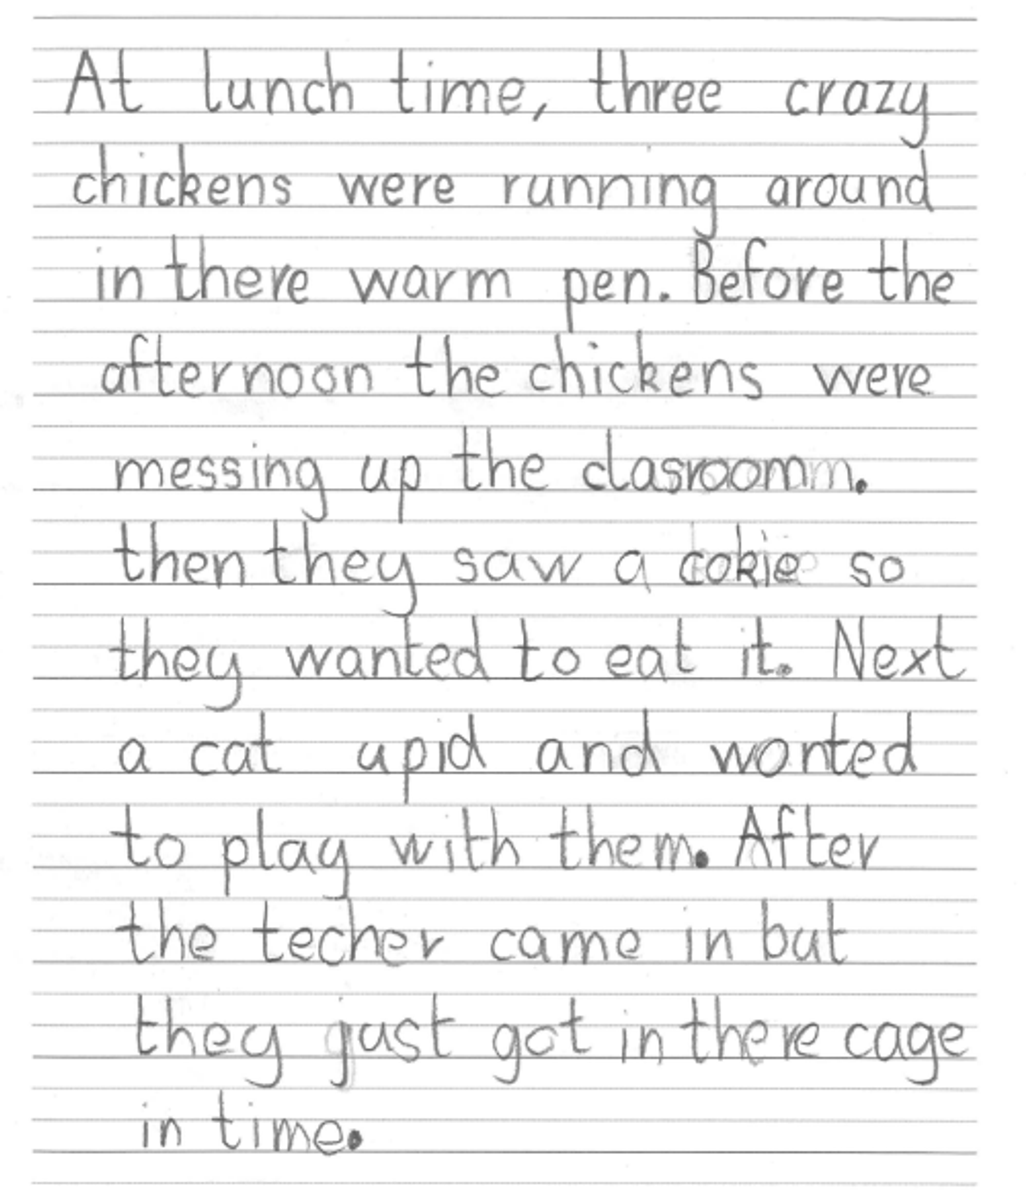 At lunch time, three crazy
chickens were running around
in there warm pen. Before the
afternoon the chickens were
messing up the clasroomm.
then they saw a cokie so
they wanted to eat it. Next
a cat apid and wonted
to play with them. After
the techer came in but
they just got in there cage
in time.